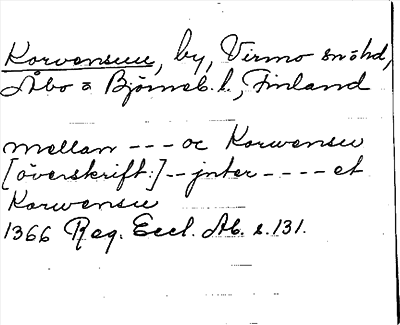 Korvensuu, by, Virmo snöhd,
Åbo o Björneb. l., Finland
mellan --- oc Korwensu
[överskrift:] -- jnter ---- et
Korwensu
1366 Reg. Eccl. Ab. s. 131.